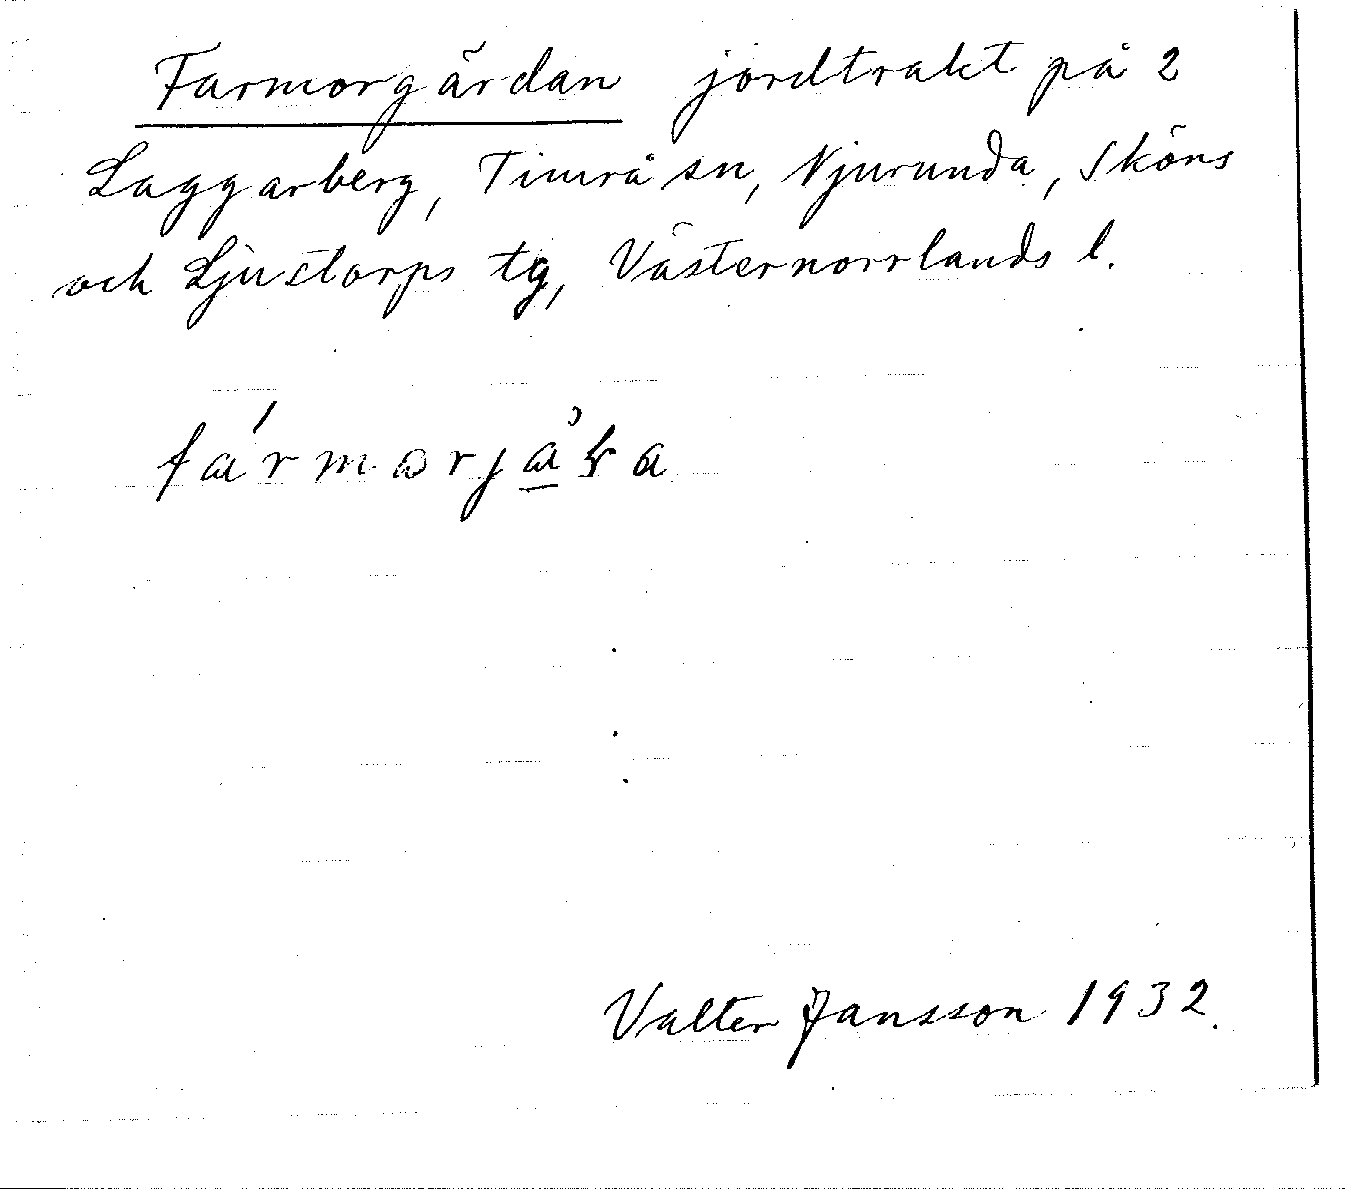 Farmorgärdan jordtrakt på 2
Laggarberg, Timrå sn, Njurunda, Sköns
och Ljustorps tg, Västernorrlands l.
Valter Jansson 1932.